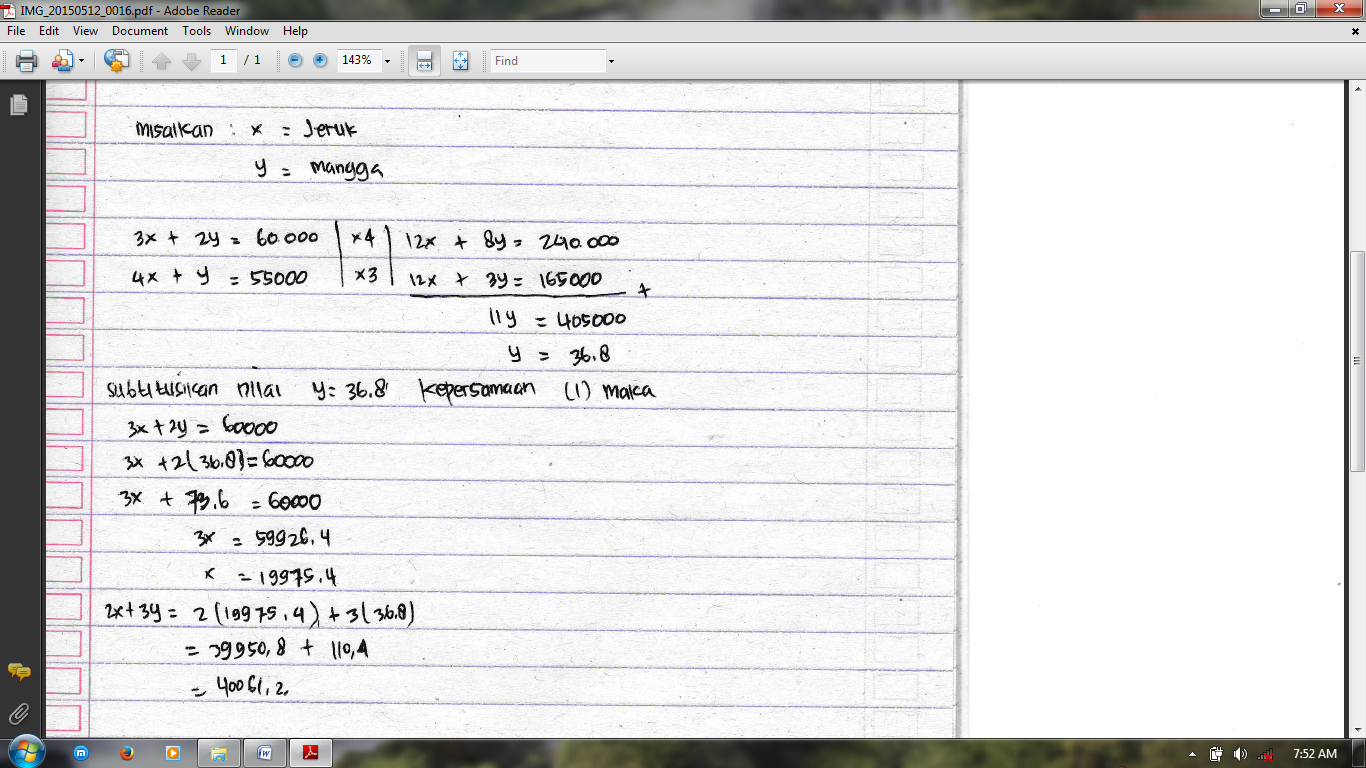 IMG_20150512_0016.pdf - Adobe Reader
File Edit View Document Tools Window Help
1 / 1 143% Find
misalkan : x = Jeruk
y = mangga
3x + 2y = 60.000 | x4 | 12x + 8y = 240.000
4x + y = 55000 | x3 | 12x + 3y = 165000 +
11y = 405000
y = 36.8
subtitusikan nilai y = 36.8 kepersamaan (1) maka
3x + 2y = 60000
3x + 2(36.8) = 60000
3x + 73.6 = 60000
3x = 59926.4
x = 19975.4
2x + 3y = 2(19975.4) + 3(36.8)
= 39950,8 + 110,4
= 40061,2
7:52 AM